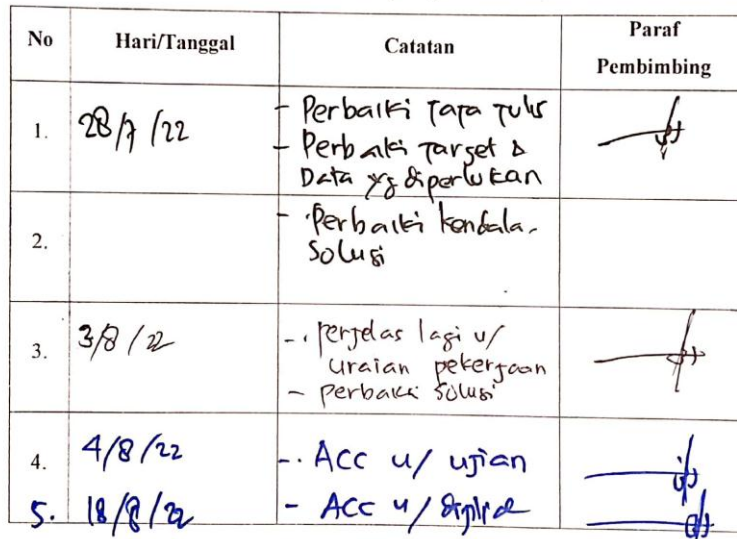 No Hari/Tanggal Catatan Paraf Pembimbing
1. 28/7/22 - Perbaiki Tata Tulis
- Perbaiki Target &
Data yg diperlukan
2. - Perbaiki kendala,
Solusi
3. 3/8/22 - perjelas lagi u/
uraian pekerjaan
- perbaiki solusi
4. 4/8/22 - ACC u/ ujian
5. 18/8/22 - ACC u/